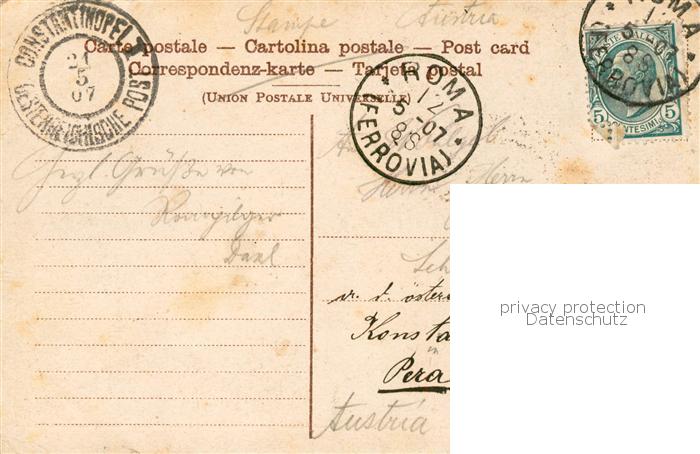 Stampe Austria
Carte postale — Cartolina postale — Post card
Correspondenz-karte — Tarjeta postal
(Union Postale Universelle)
CONSTANTINOPEL I
21
5
07
OESTERREICHISCHE POST
* ROMA *
12
5 -07
8S
(FERROVIA)
* ROMA
12
-07
8S
RROVIA)
POSTE ITALIANE
5 CENTESIMI 5
Herzl. Grüße von
Rompilger
Herrn
v. d. österr
Konsta
in
Pera
Austria
privacy protection
Datenschutz